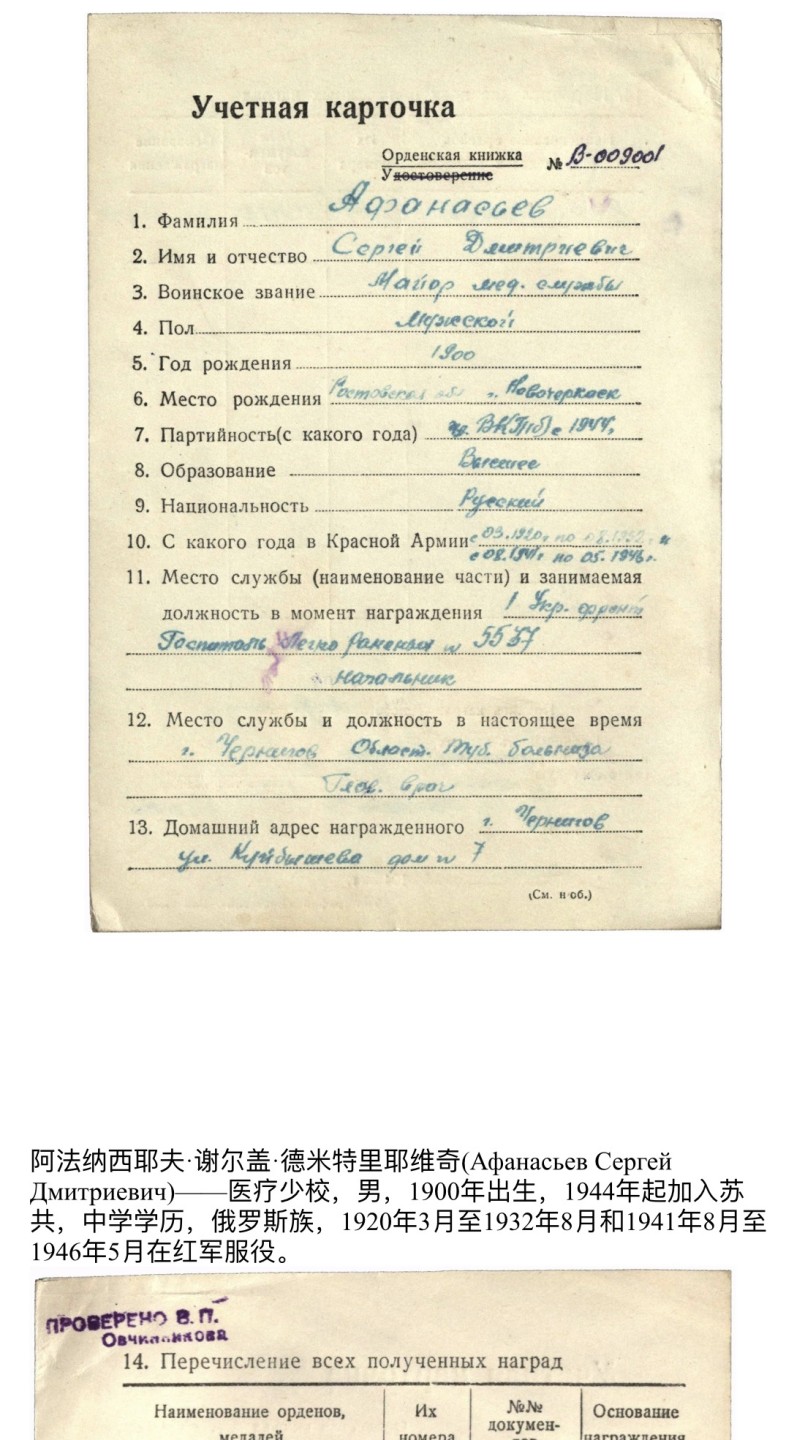 Учетная карточка
Орденская книжка
Удостоверение № В-009001
1. Фамилия Афанасьев
2. Имя и отчество Сергей Дмитриевич
3. Воинское звание Майор мед. службы
4. Пол Мужской
5. Год рождения 1900
6. Место рождения Ростовская обл г. Новочеркаск
7. Партийность(с какого года) ВК(П)б с 1944г
8. Образование Высшее
9. Национальность Русский
10. С какого года в Красной Армии с 03.1920г по 08.1932г и
с 08.1941г по 05.1946г.
11. Место службы (наименование части) и занимаемая
должность в момент награждения 1 Укр. фронт
Госпиталь Легко раненых № 5537
начальник
12. Место службы и должность в настоящее время
г. Чернигов Област. Туб. больница
Глав. врач
13. Домашний адрес награжденного г. Чернигов
ул. Куйбышева дом № 7
(См. н об.)
阿法纳西耶夫·谢尔盖·德米特里耶维奇(Афанасьев Сергей
Дмитриевич)——医疗少校，男，1900年出生，1944年起加入苏
共，中学学历，俄罗斯族，1920年3月至1932年8月和1941年8月至
1946年5月在红军服役。
ПРОВЕРЕНО В. П.
Овчинникова
14. Перечисление всех полученных наград
Наименование орденов, Их №№ Основание
медалей номера докумен- награждения